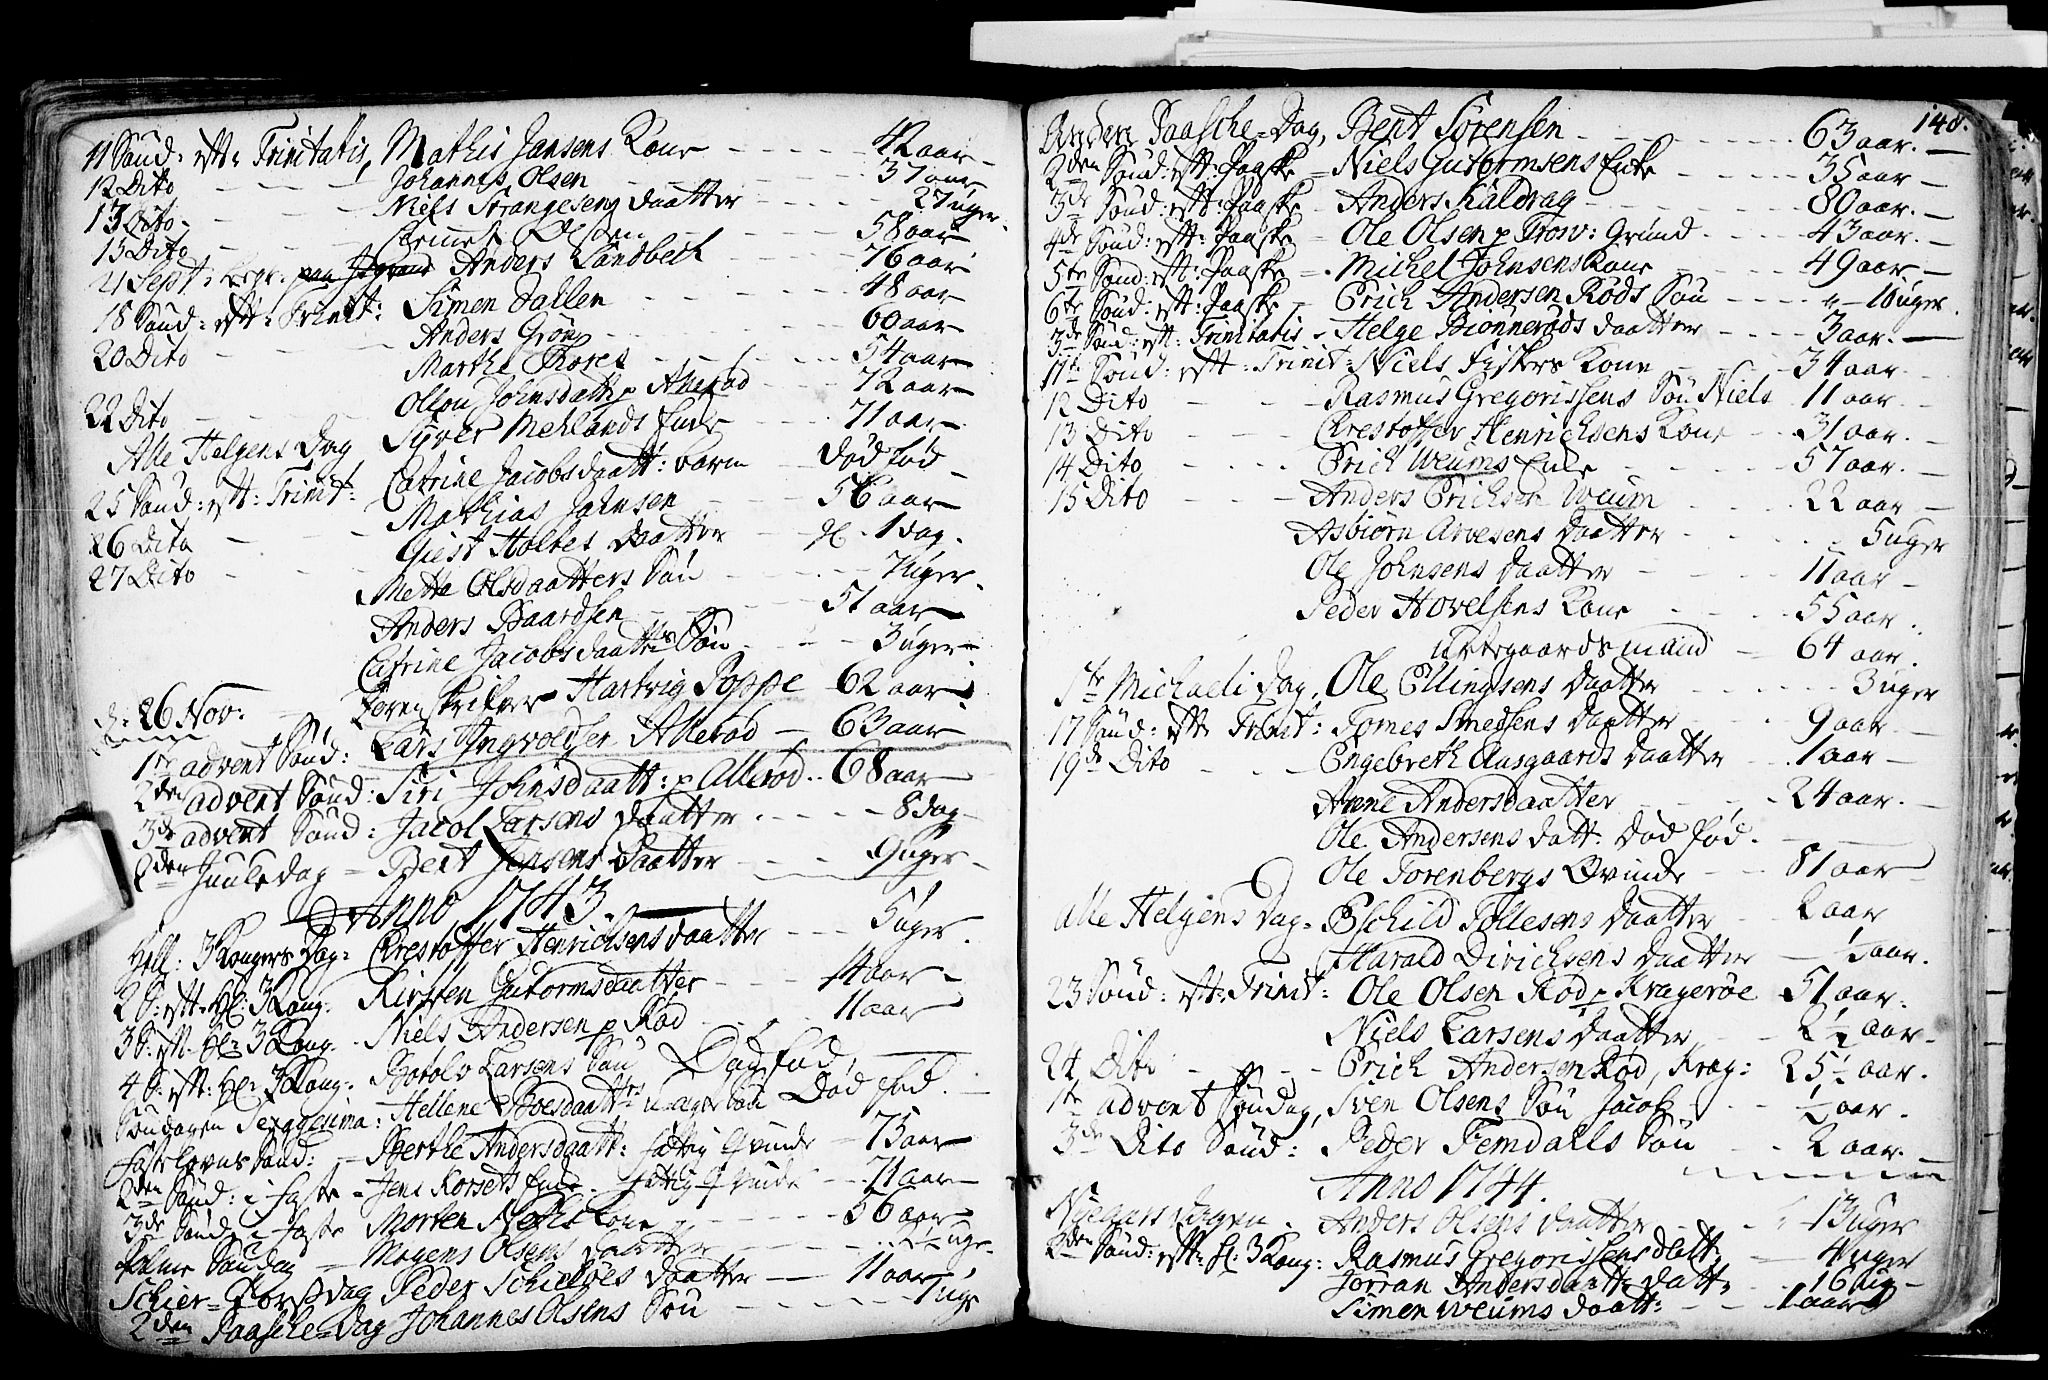 11 Sønd: eft: Trinitatis, Mathis Jansens Kone - - - - 42 aar -
12 Dito - - - Johannes Olsen - - - 37 aar
13 Dito - - - Niels Strangesens Daatter - - - 27 uger.
15 Dito - - - Olsen - - - 58 aar
21 Sept: begr. Anders Sandbech 76 aar
18 Sønd: eft: Trinit: Simen Dallen - - - 48 aar
Anders Grøn - - - 60 aar
20 Dito - - - Marthe Thores - - - 54 aar
Ollou Johnsdaatt: p Allerød - - - 72 aar
22 Dito - - - Syver Mehlands Enke - - - 71 aar
Alle Helgens Dag Catrine Jacobsdaatt: barn - Død fød -
25 Sønd: eft: Trinit: Mathias Johnsen - - - 56 aar
26 Dito - - - Giest Holtes Daatter - - 1 dag.
27 Dito - - - Mette Olsdaatters Søn - - - 7 uger.
Anders Baardsen - - - 51 aar
Catrine Jacobsdaatters Søn - - - 3 uger
d: 26 Nov: - Sorenskriver Hartvig Poppe 62 aar
1te advent Sønd: Lars Ingvoldsen Allerød - 63 aar
2den advent Sønd: Siri Johnsdaatt: p Allerød - 68 aar
3de advent Sønd: Jacob Larsens Daatter - - - 8 dag
2den Juuledag = Bent Jensens Daatter - - - 9 uger -
Anno 1743.
Hell: 3 Kongers Dag = Christoffer Henrichsens Daatter - - - 5 uger.
2 S: eft: Hl: 3 Kong. Kirsten Gutormsdaatter - - - 14 aar -
3 S: eft: Hl: 3 Kong. Niels Andersen p Rød - - - 11 aar
4 S: eft: Hl: 3 Kong. Botolv Larsens Søn Død fød,
Søndagen Sexagesima: Hellene Boesdaatters uægte Søn Død fød.
Fastelavns Sønd: - Berthe Andersdaatt: fattig Qvinde - 75 aar
2den Sønd: i Faste - Jens Korsets Enke - fattig Qvinde - - 71 aar
3de Sønd: i Faste Morten Kone - - - 56 aar
Palme Søndag = Mogens Olsens Daatter - - - uge.
Schier-Torsdag Peder Schieløes Daatter - - 11 aar
2den Paasche-Dag Johannes Olsens Søn - - - 7 uge
148.
Anden Paasche-Dag, Bent Sørensen - - - 63 aar. -
2den Sønd: eft: Paaske - Niels Gutormsens Enke - - - 35 aar -
3de Sønd: eft: Paaske - Anders Kaldrag - - - 80 aar. -
4de Sønd: eft: Paaske - Ole Olsen p Trosv: Grund - - - 43 aar. -
5te Sønd: eft: Paaske - Michel Johnsens Kone - - - 49 aar -
6te Sønd: eft: Paaske - Erich Andersen Røds Søn - - - 10 uger.
3de Sønd: eft: Trinitatis - Helge Biønnerøds Daatter - - - 3 aar. -
11te Sønd: eft: Trinit: Niels Fiskers Kone - - - 34 aar.
12 Dito - - - Rasmus Gregorissens Søn Niels 11 aar.
13 Dito - - - Christoffer Henrichsens Kone - - 31 aar. -
14 Dito - - - Erich Weums Enke - - - 57 aar. -
15 Dito - - - Anders Erichsen Weum - - - 22 aar -
Asbiørn Arvesens Daatter - - - 5 uger
Ole Johnsens Daatter - - - 11 aar -
Peder Hovelsens Kone - - - 55 aar.
Urtegaardsmand - 64 aar.
1te Michaeli Dag, Ole Ellingsens Daatter - - - 3 uger
17 Sønd: eft: Trinit: Tomes Smedsens Daatter - - - 9 aar. -
19de Dito - - - Engebreth Aasgaards Daatter - - 1 aar -
Anne Andersdaatter - - - 24 aar. -
Ole Andersens Datt: Død fød. -
Ole Torenbergs Qvinde - - 81 aar -
Alle Helgens Dag - Eschild Tollesens Daatter - 2 aar
Harald Dirichsens Daatter - ½ aar.
23 Sønd: eft: Trinit: Ole Olsen Rød p Kragerøe 51 aar.
Niels Larsens Daatter - - 2 ½ aar -
24 Dito - - - Erich Andersen Rød, Krag: 25 ½ aar.
1te advent Søndag, Sven Olsens Søn Jacob - - - ½ aar.
3de Dito Sønd: Peder Femdalls Søn - - - 2 aar. -
Anno 1744.
Nyeaars Dagen - Anders Olsens Daatter - - - 13 uger
2den Sønd: eft: Hl: 3 Kong: Rasmus Gregorissens Datt: - 4 uger
Jorran Andersdaatt: Datt: - 16 ug -
Simen Weums Daatt: - - 1 aar